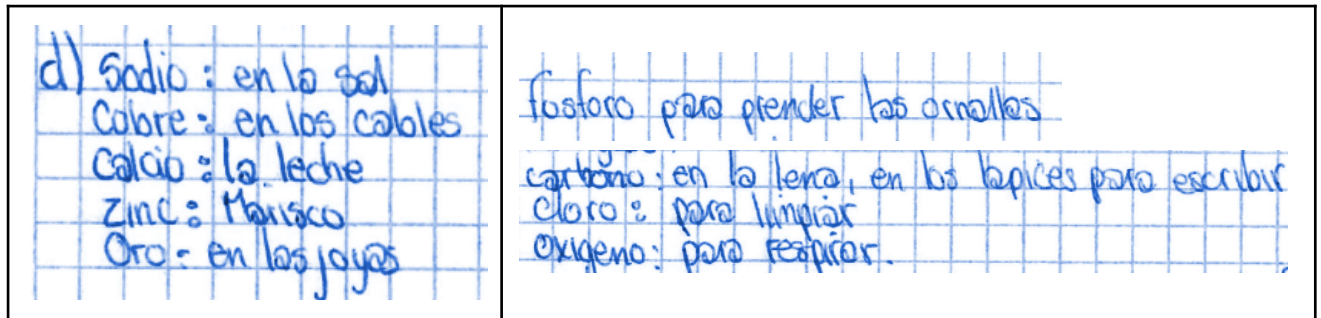 d) Sodio : en la sal
Cobre : en los cables
Calcio : la leche
Zinc : Marisco
Oro : en las joyas
fosforo para prender las ornallas
carbono : en la lena, en los lapices para escribir
cloro : para limpiar
oxigeno : para respirar.